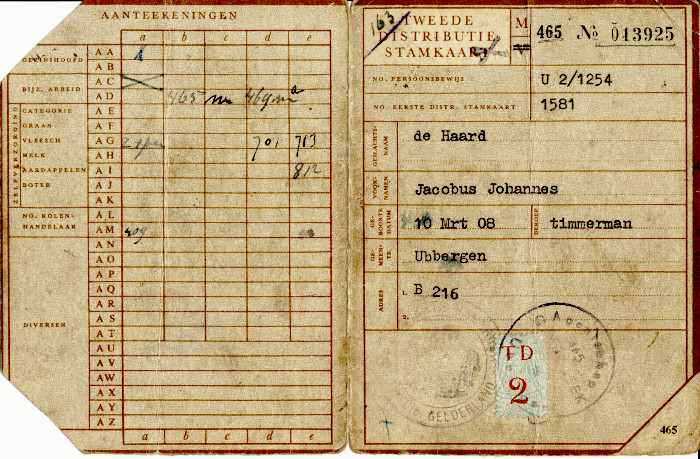 AANTEEKENINGEN
a b c d e
GEZINSHOOFD
BIJZ. ARBEID
ZELFVERZORGING
CATEGORIE
GRAAN
VLEESCH
MELK
AARDAPPELEN
BOTER
NO. KOLEN-
HANDELAAR
DIVERSEN
AA
AB
AC
AD 465 m 469 m a
AE
AF
AG 701 713
AH
AI 812
AJ
AK
AL
AM 409
AN
AO
AP
AQ
AR
AS
AT
AU
AV
AW
AX
AY
AZ
a b c d e
163
TWEEDE
DISTRIBUTIE
STAMKAART
M
V
465 No 013925
NO. PERSOONSBEWIJS U 2/1254
NO. EERSTE DISTR. STAMKAART 1581
GESLACHTS-
NAAM
de Haard
VOOR-
NAMEN
Jacobus Johannes
GE-
BOORTE
DATUM
10 Mrt 08
BEROEP
timmerman
GE-
MEEN-
TE
Ubbergen
ADRES
1. B 216
2.
TD
2
GELDERLAND
465